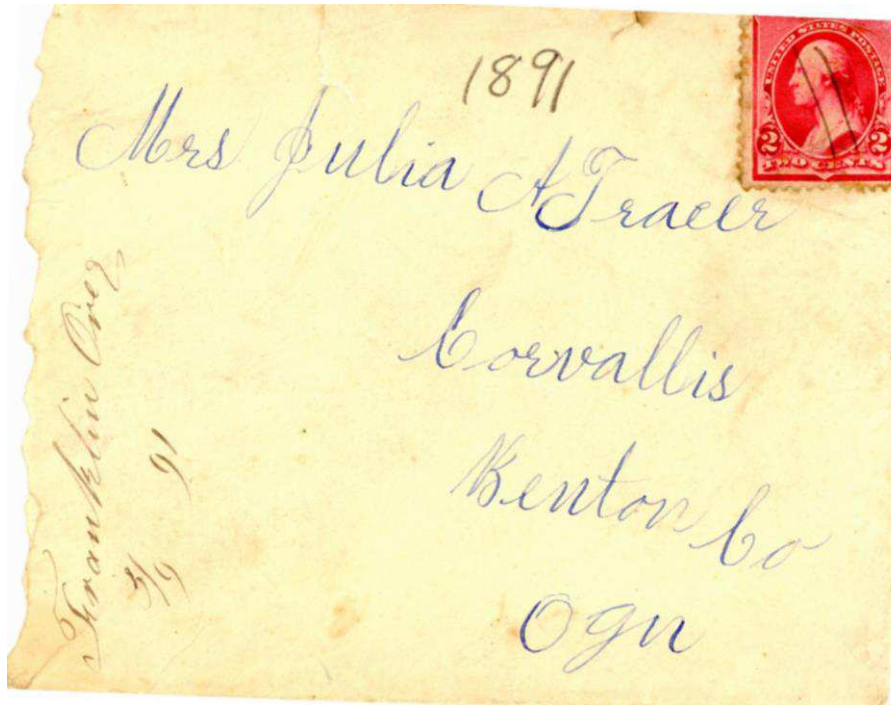 1891
UNITED STATES POSTAGE
2 2
TWO CENTS
Mrs Julia A Traeer
Corvallis
Benton Co
Ogn
Franklin Oreg
5/9 91